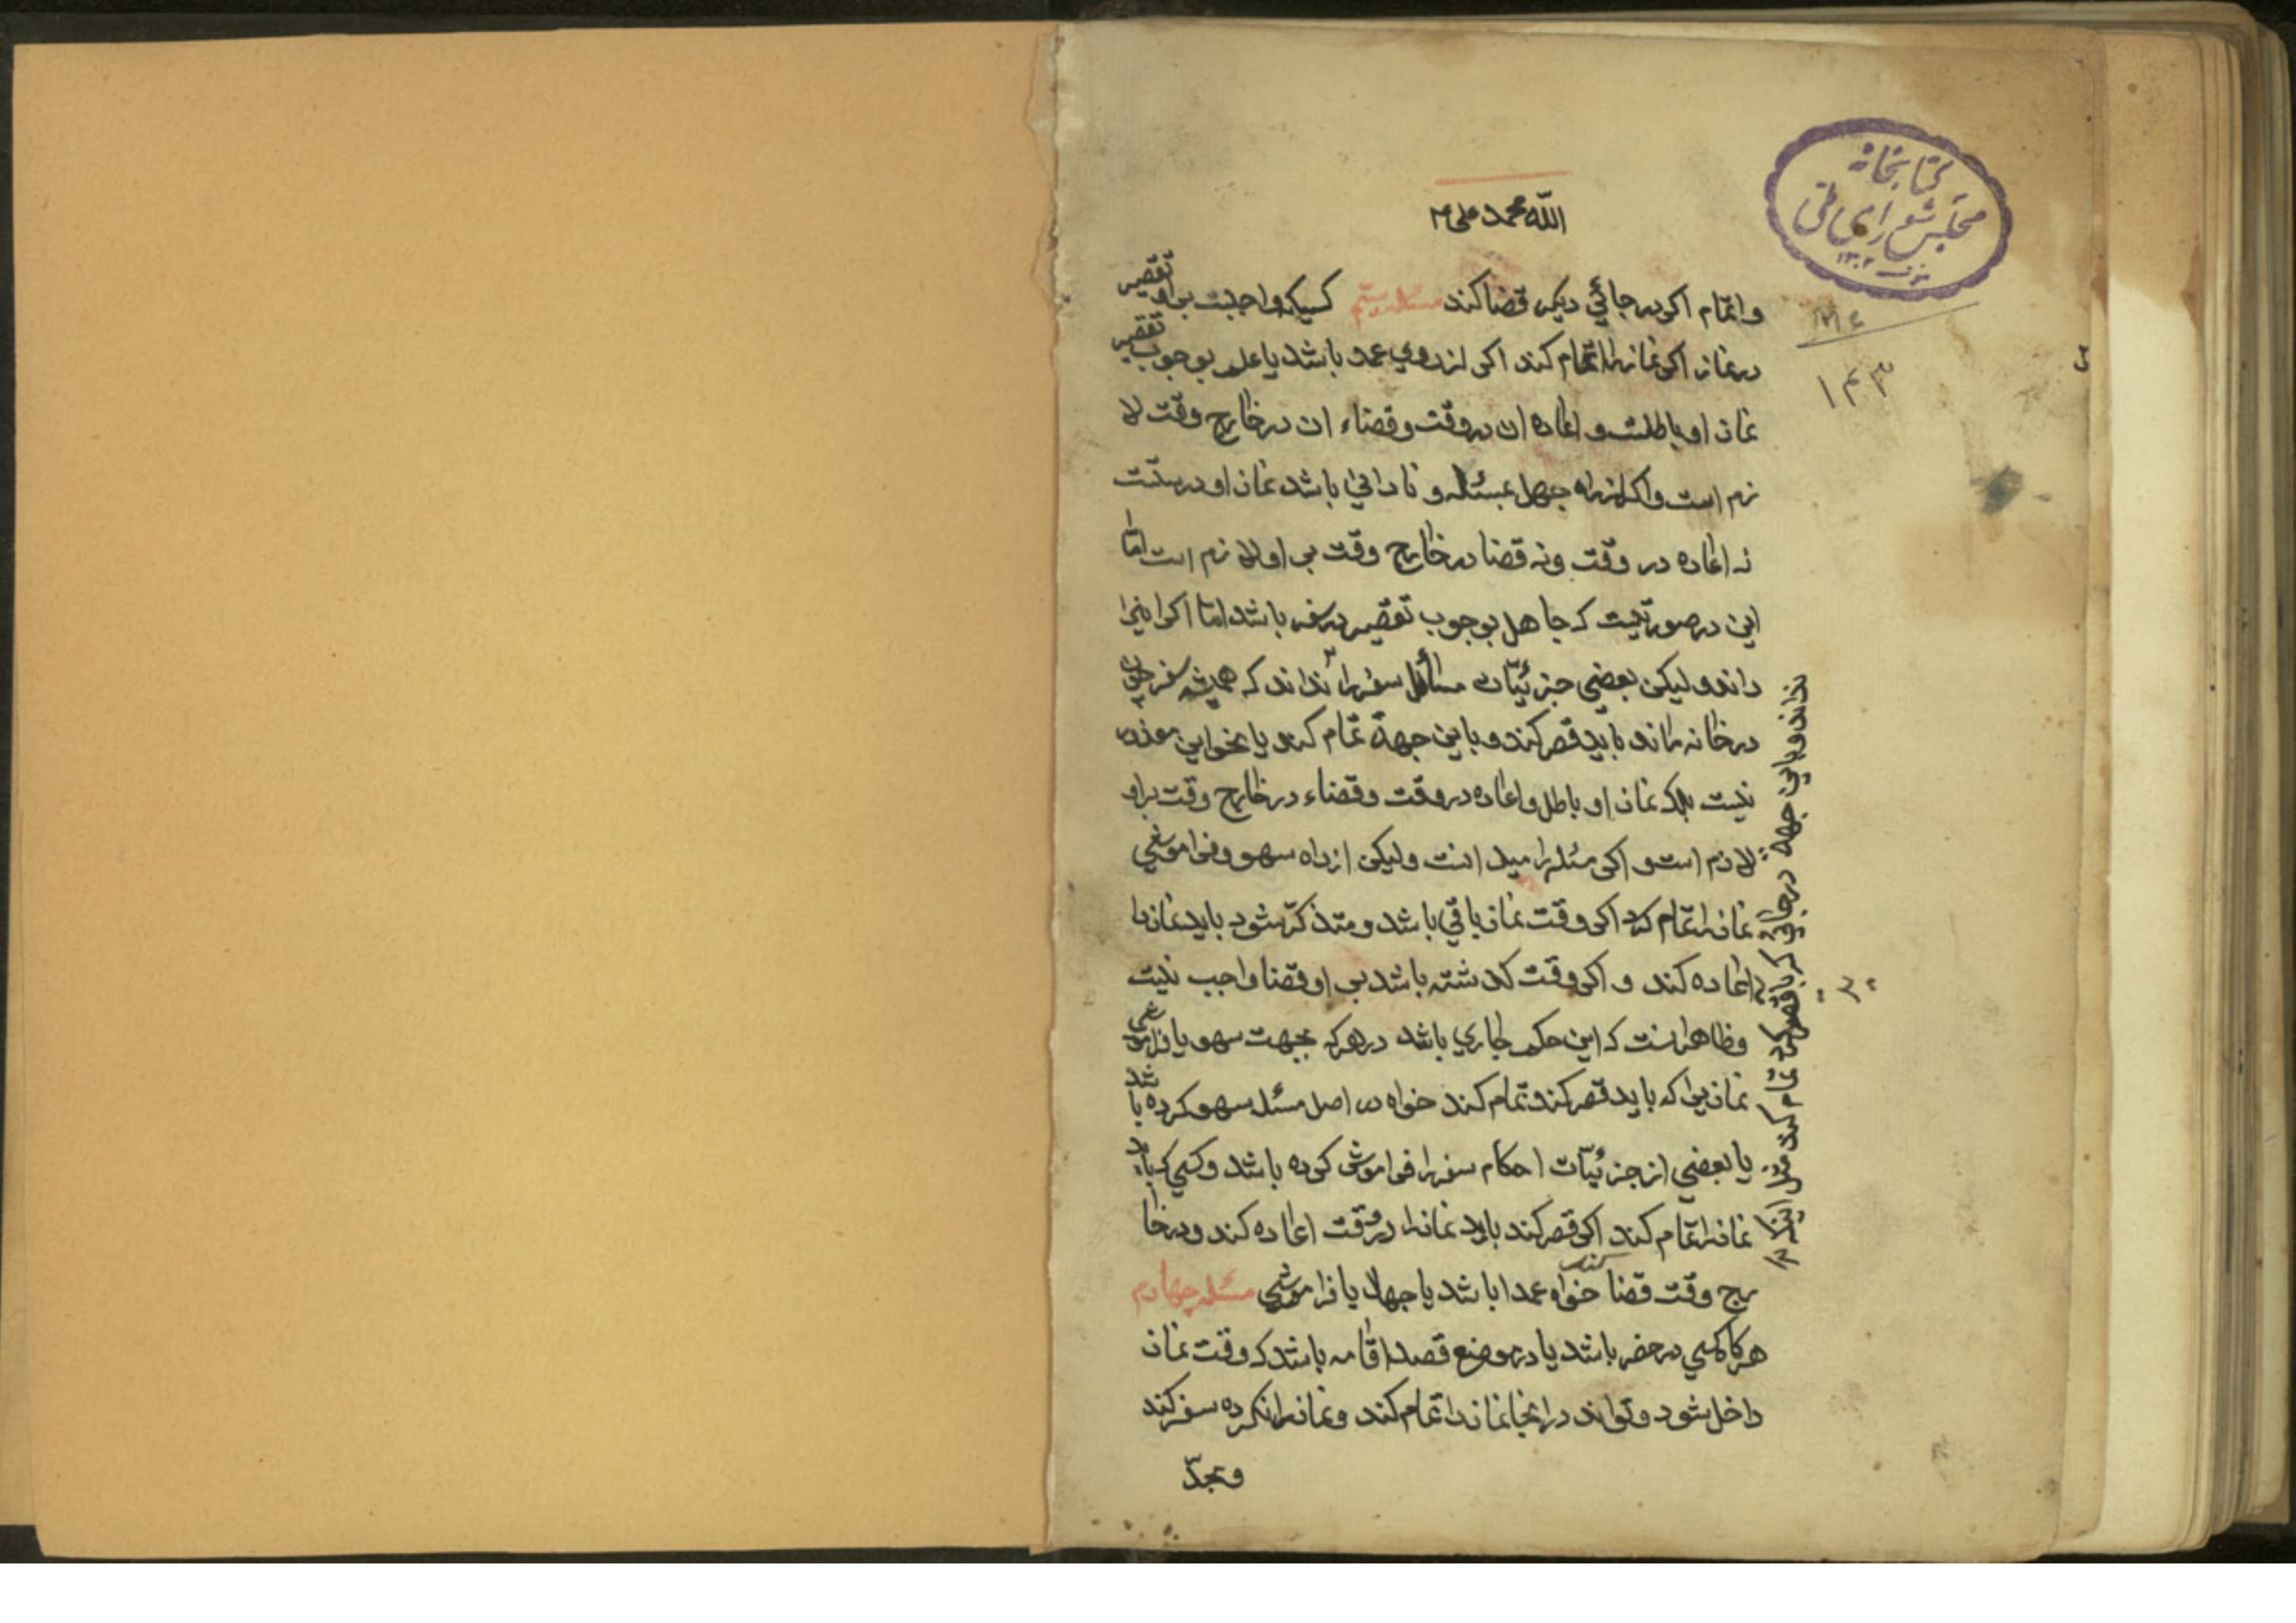 کتابخانه
مجلس شورای ملی
۱۳۰۲
۱۴۳
الله محمد علی
و اتمام اکر در جائي دیکر قضا کند مسئله سیم کسیکه واجبست بر او تقصیر
در نماز اکر نماز را اتمام کند اکر از روي عمد باشد با علم بوجوب تقصیر
نماز او باطلست و اعاده ان در وقت و قضاء ان در خارج وقت لا
زم است و اکر از راه جهل بمسئله و نادانی باشد نماز او درستست
نه اعاده در وقت و نه قضا در خارج وقت بر او لازم است امّا
این در صورتیست که جاهل بوجوب تقصیر در سفر باشد امّا اکر اینرا
داند و لیکن بعضی جزئیّات مسائل سفر را نداند که همیشه سفر چون
در خانه ماند باید قصر کند و باین جهة تمام کند یا نحو این معذور
نیست بلکه نماز او باطل و اعاده در وقت و قضاء در خارج وقت بر او
لازم است و اکر مسئله را میدانست و لیکن از راه سهو و فراموشي
نماز را تمام کرد اکر وقت نماز باقي باشد و متذکّر شود باید نماز را
اعاده کند و اکر وقت کذشته باشد بر او قضا واجب نیست
و ظاهر انست که این حکم جاري باشد در هر که بجهت سهو یا فراموشي
نمازیرا که باید قصر کند تمام کند خواه در اصل مسئله سهو کرده باشد
یا بعضي از جزئیّات احکام سفر را فراموش کرده باشد و کسي که باید
نماز را تمام کند اکر قصر کند باید نماز را در وقت اعاده کند و در خا
رج وقت قضا کند خواه عمدا باشد یا جهلا یا فراموشي مسئله چهارم
هرکاه کسي در حضر باشد یا در موضع قصد اقامه باشد که وقت نماز
داخل شود و تواند در انجا نماز را تمام کند و نماز را نکرده سفر کند
و تجدّ
نداند و باین جهة در جائي که باید قصر کرد تمام کند مثل اینکه